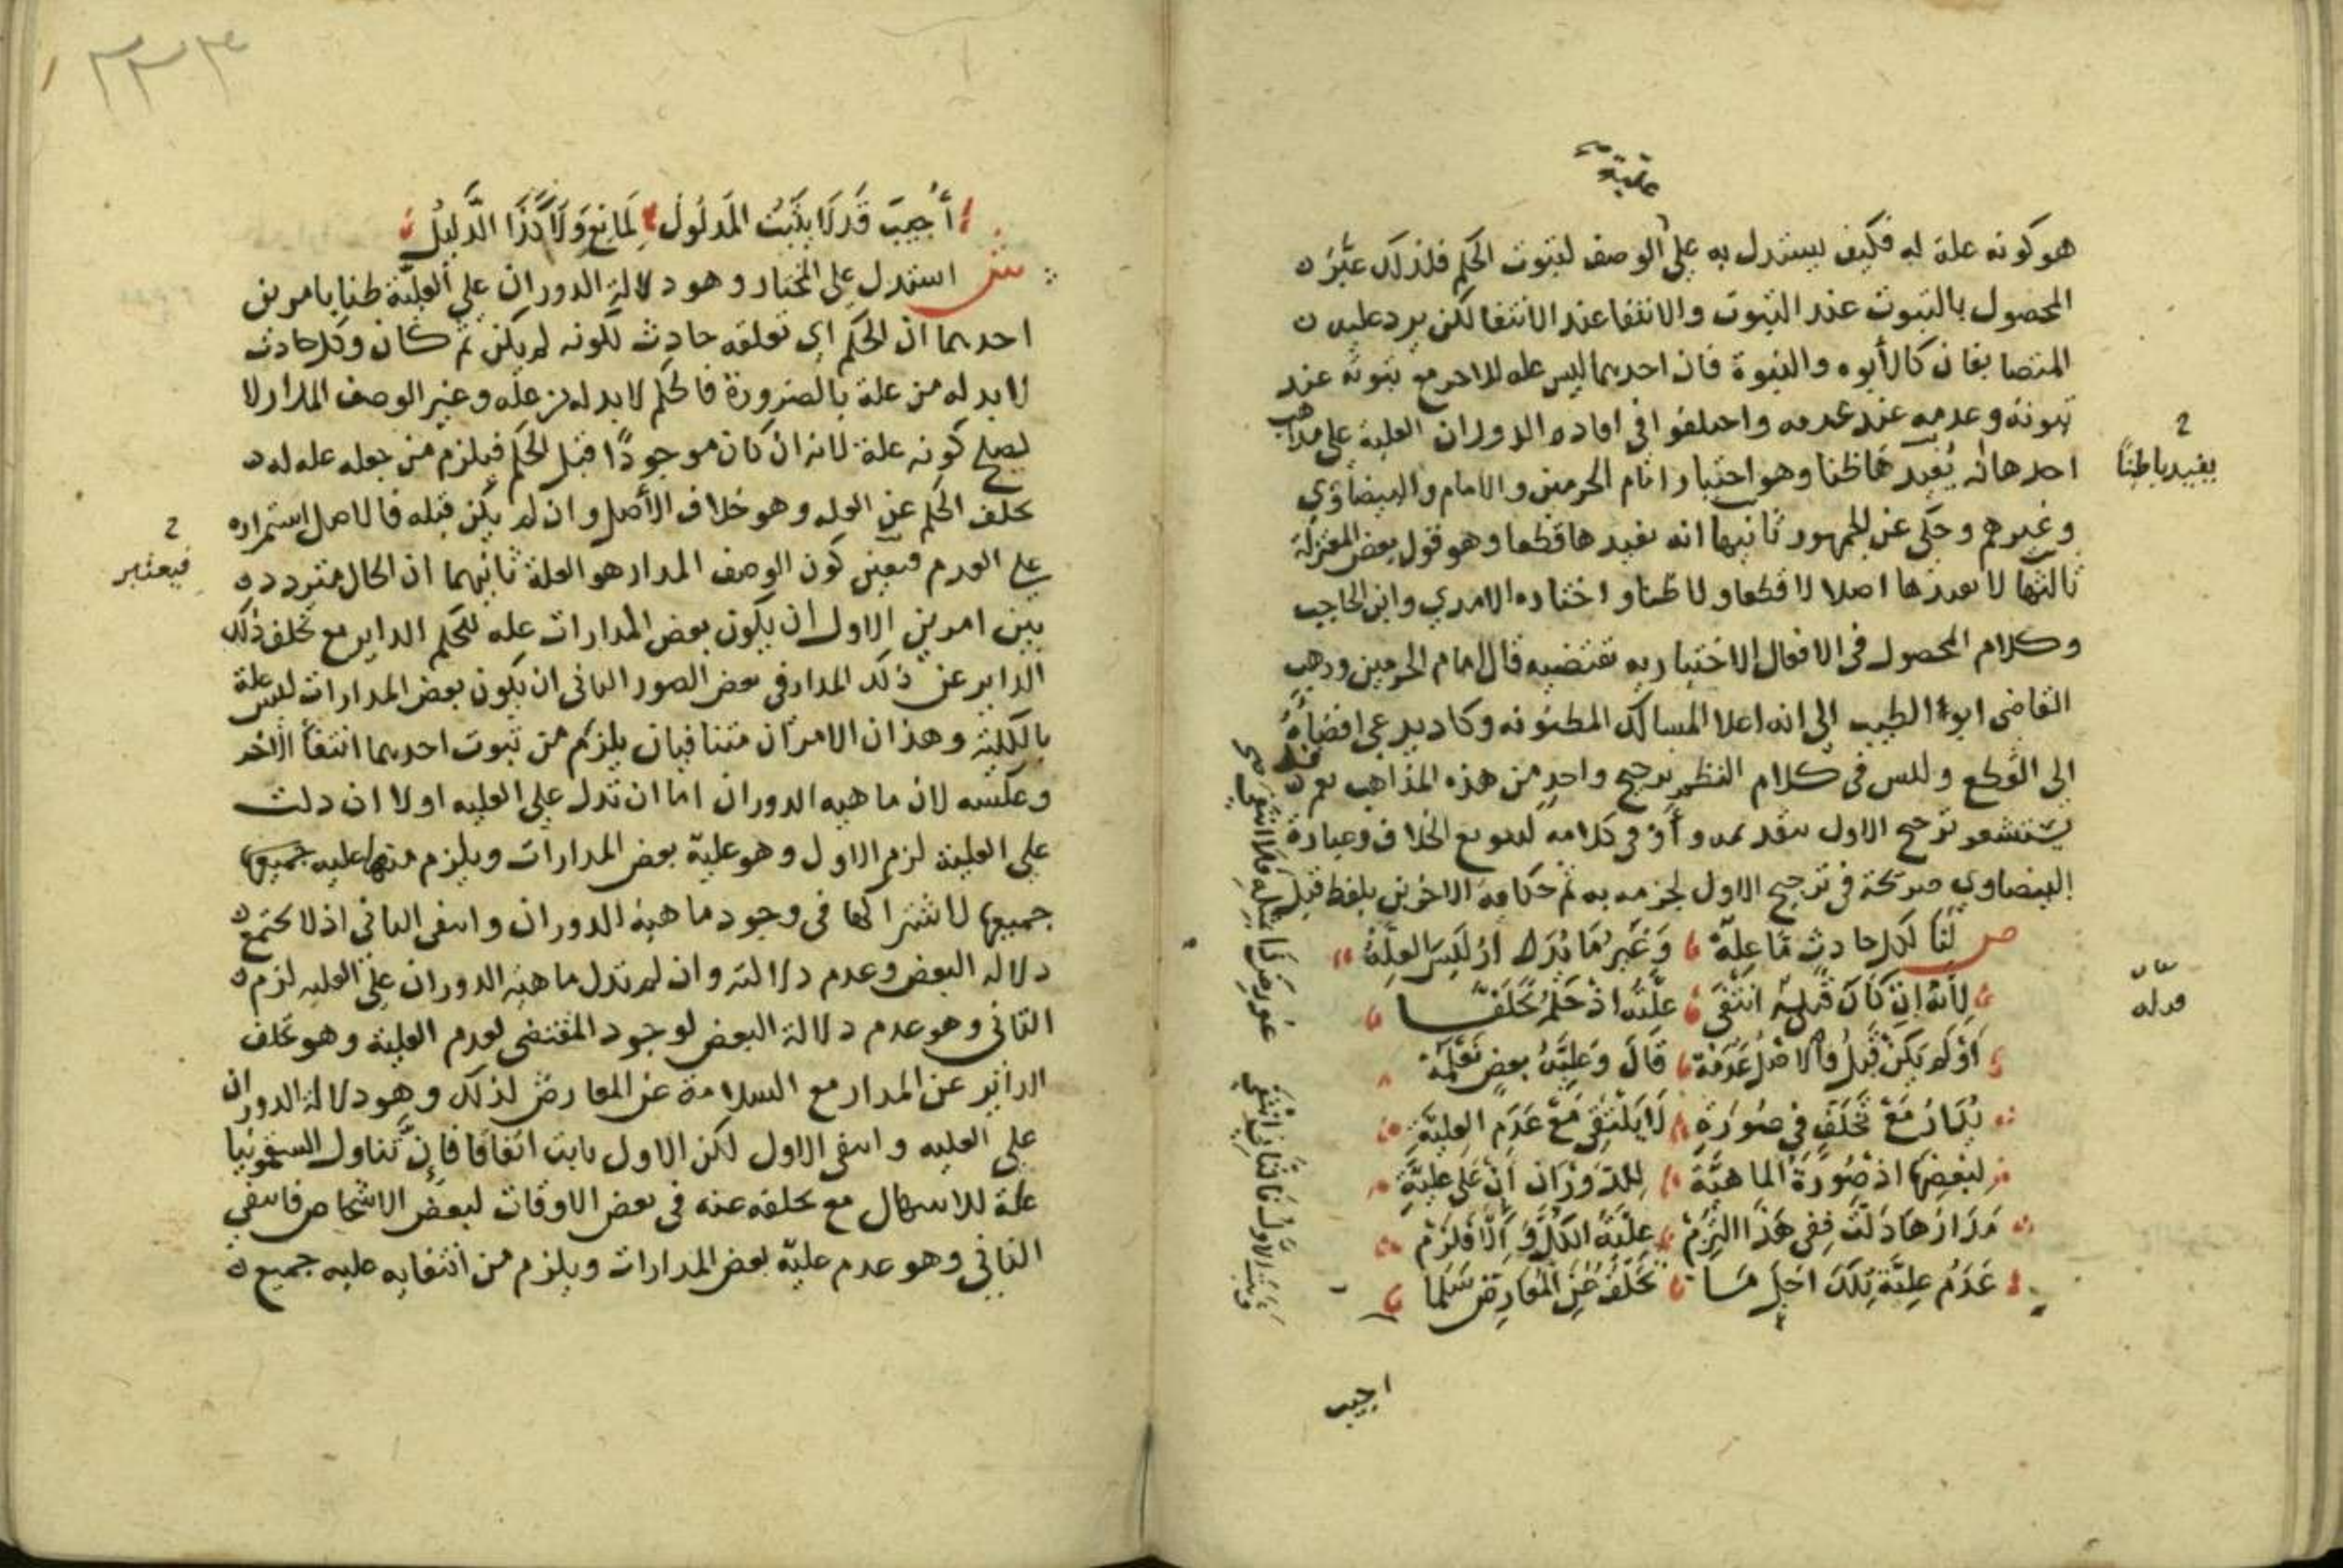 عليته
هو كونه علة له فكيف يستدل به على الوصف لثبوت الحكم فلذلك عبر
المحصول بالثبوت عند الثبوت والانتفا عند الانتفا لكن يرد عليه
المتضايفان كالأبوه والبنوة فان احدهما ليس عله للاخر مع ثبوته عند
ثبوته وعدمه عند عدمه واختلفوا في افاده الدوران العلية على مذاهب
احدها انه يفيدها ظنا وهو اختيار امام الحرمين والامام والبيضاوي
وغيرهم وحكي عن الجمهور ثانيها انه يفيدها قطعا وهو قول بعض المعتزلة
ثالثها لا يفيدها اصلا لا قطعا ولا ظنا واختاره الامدي وابن الحاجب
وكلام المحصول في الافعال الاختياريه تقتضيه قال امام الحرمين وذهب
القاضي ابو الطيب الى انه اعلا المسالك المظنونه وكاد يدعي افضاه
الى القطع وليس في كلام النظم ترجيح واحد من هذه المذاهب نعم قد
يستشعر ترجيح الاول بتقديمه واو في كلامه لتنويع الخلاف وعبارة
البيضاوي صريحة في ترجيح الاول لجزمه به ثم حكاية الاخرين بلفظ قيل
ص لنا لكل حادث ما علة وغير ما يدرك اذ ليس العلة
لأنه ان كان قبليه انتفى علته اذ حكم تخلفا
او لم يكن قبل والاصل عدمه قال وعلية بعض تعلمه
تدار مع تخلف في صورة لا يلتقي مع عدم العلية
لبعضها اذ صورة الماهية للدوران ان على علية
مدارها دلت ففي هذا التزم علية الكل والا فلزم
عدم علية تلك اجل ما تخلف عن المعارض سلما
اجيب
يفيدها ظنا
أجيب قد لا يثبت المدلول لمانع ولا كذا الدليل
ش استدل على المختار وهو دلالة الدوران على العلية ظنا بامرين
احدهما ان الحكم اي تعلقه حادث لكونه لم يكن ثم كان وكل حادث
لابد له من علة بالضرورة فالحكم لابد له من عله وغير الوصف المدار لا
يصلح كونه علة لانه ان كان موجودًا قبل الحكم فيلزم من جعله عله له
تخلف الحكم عن العله وهو خلاف الأصل وان لم يكن قبله فالاصل استمراره
على العدم فتعين كون الوصف المدار هو العلة ثانيهما ان الحال متردد
بين امرين الاول ان يكون بعض المدارات عله للحكم الداير مع تخلف ذلك
الداير عن ذلك المدار في بعض الصور الثاني ان يكون بعض المدارات ليس علة
بالكلية وهذان الامران متنافيان يلزم من ثبوت احدهما انتفأ الاخر
وعكسه لان ماهيه الدوران اما ان تدل على العليه او لا ان دلت
على العلية لزم الاول وهو علية بعض المدارات ويلزم منها عليه جميعها
جميعها لاشتراكها في وجود ماهية الدوران وانتفى الثاني اذ لا يجتمع
دلاله البعض وعدم دلالته وان لم تدل ماهية الدوران على العليه لزم
الثاني وهو عدم دلالة البعض لوجود المقتضي لعدم العلية وهو تخلف
الداير عن المدار مع السلامة عن المعارض لذلك وهو دلالة الدوران
على العليه وانتفى الاول لكن الاول ثابت اتفاقا فان تناول السقمونيا
علة للاسهال مع تخلفه عنه في بعض الاوقات لبعض الاشخاص فانتفى
الثاني وهو عدم علية بعض المدارات ويلزم من انتفايه عليه جميع
فيعتبر